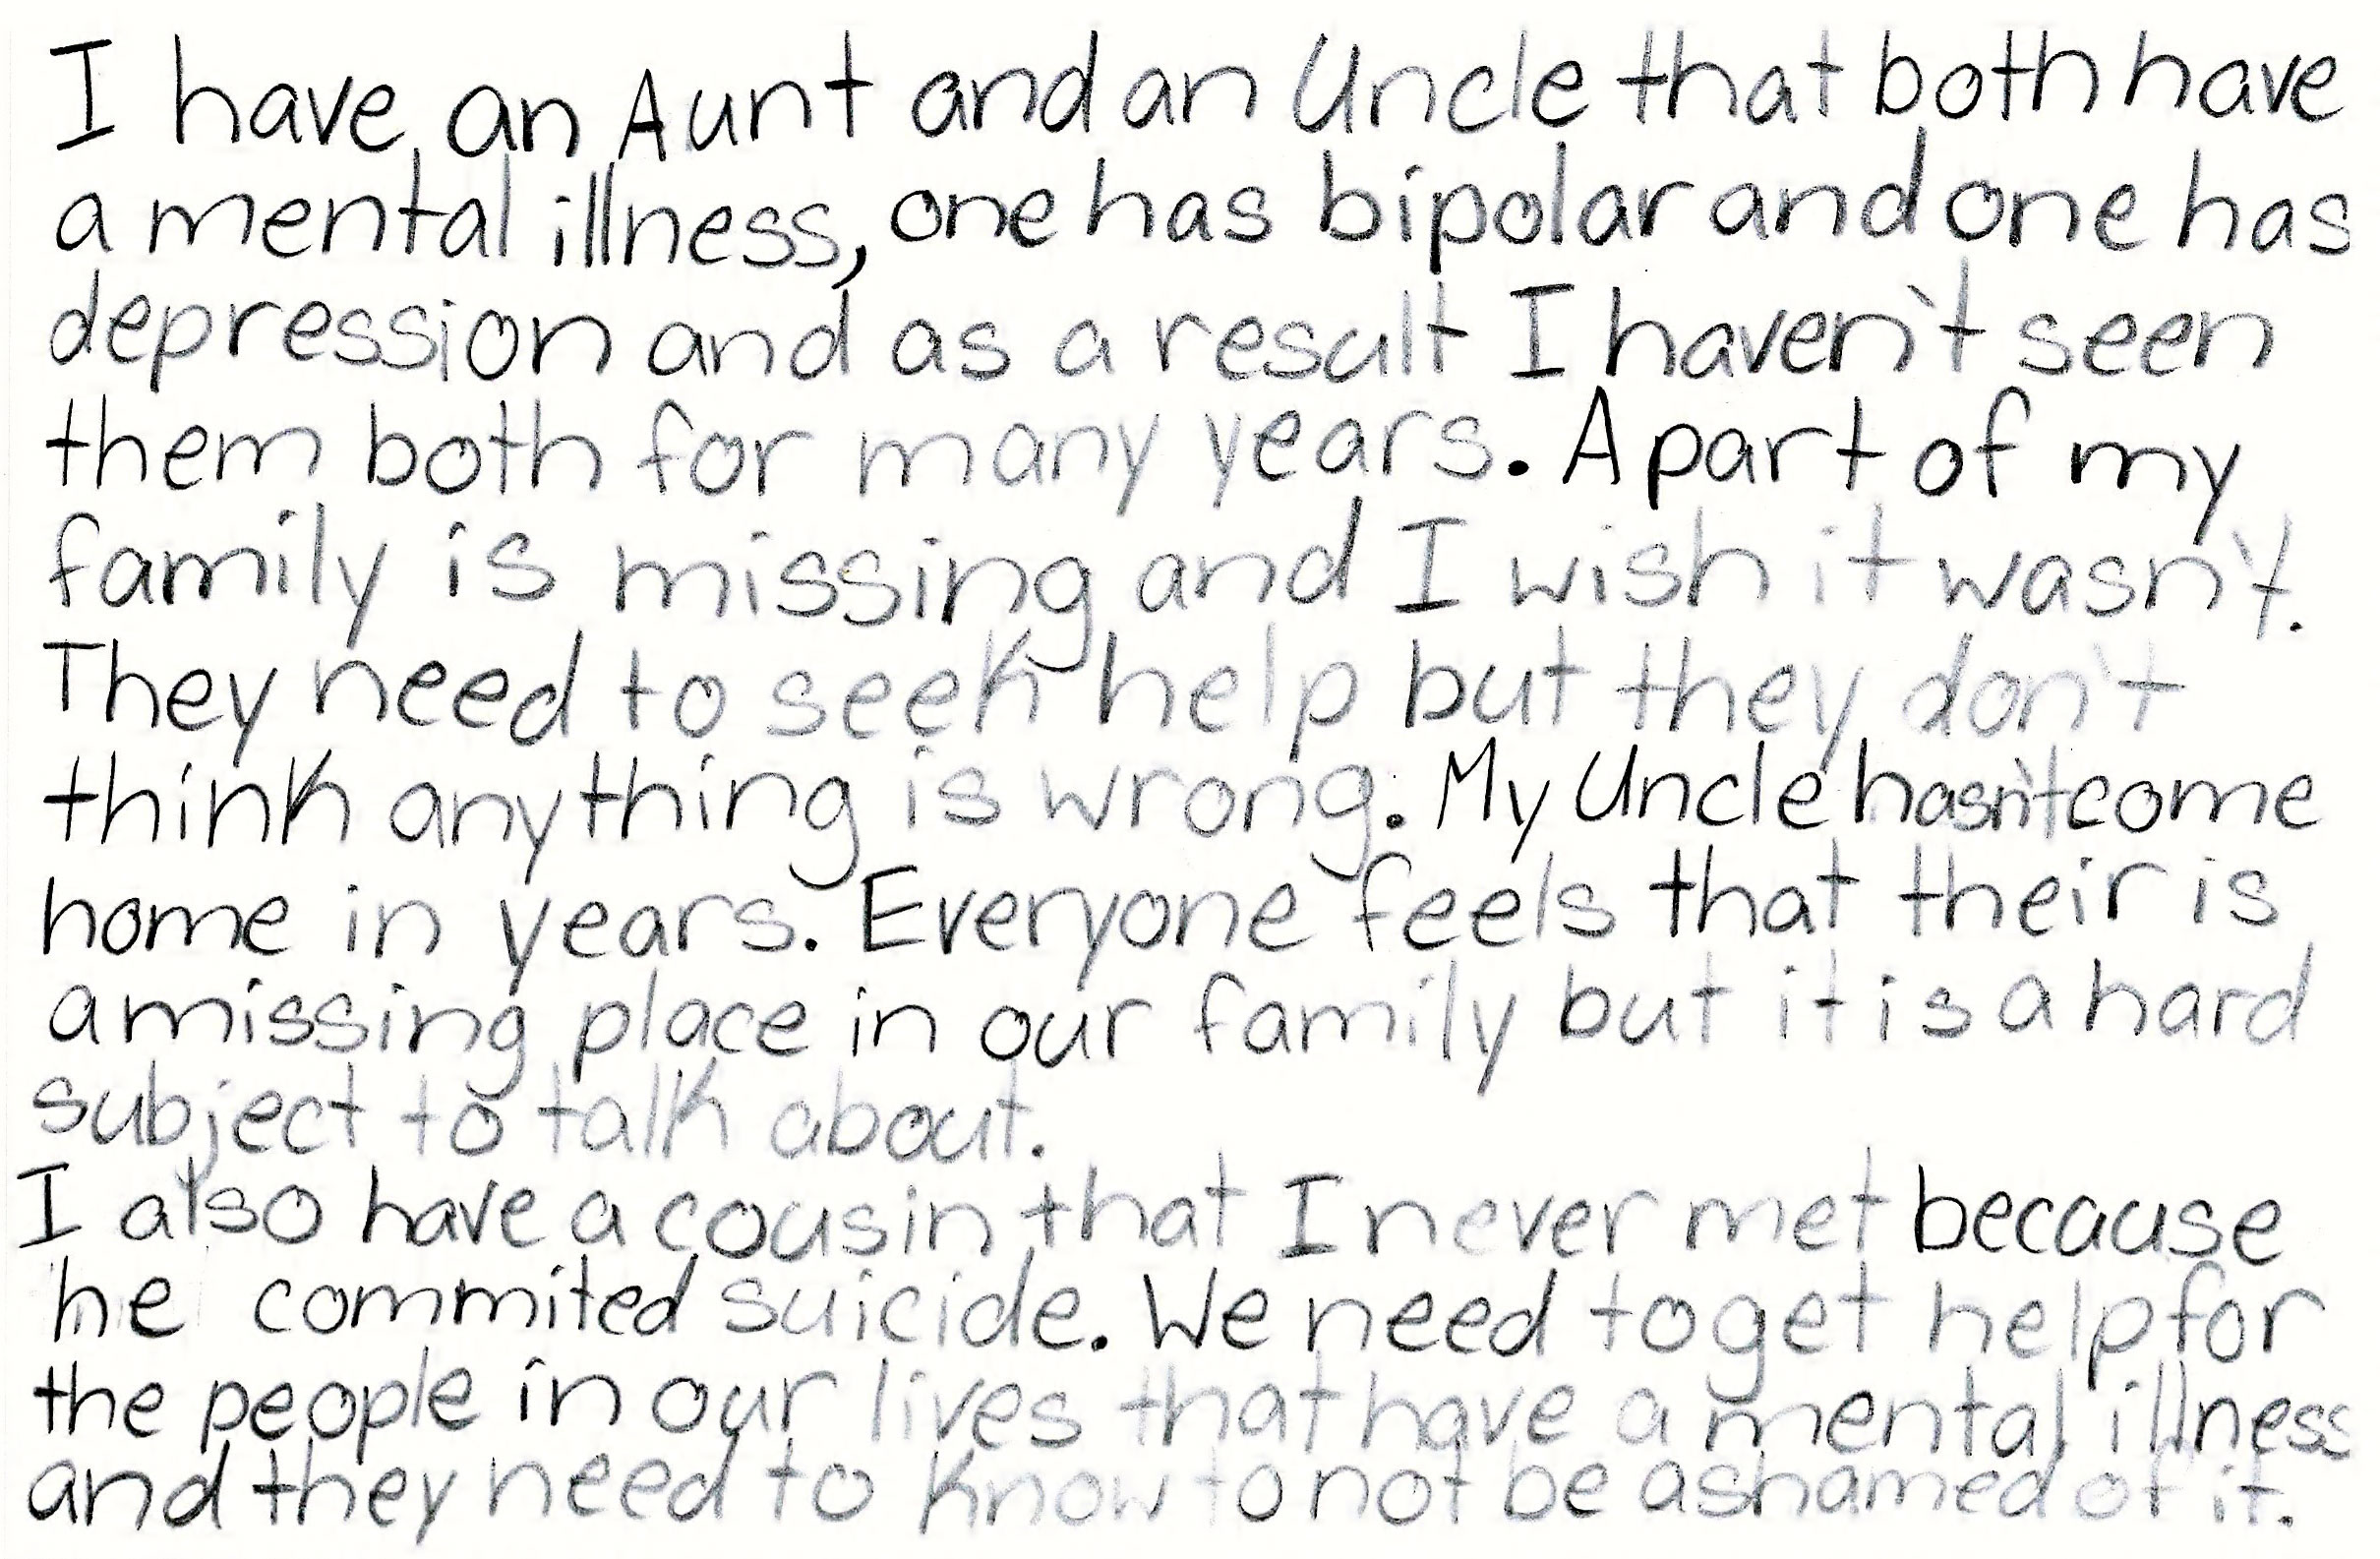 I have an Aunt and an Uncle that both have
a mental illness, one has bipolar and one has
depression and as a result I haven't seen
them both for many years. A part of my
family is missing and I wish it wasn't.
They need to seek help but they don't
think anything is wrong. My Uncle hasn't come
home in years. Everyone feels that their is
a missing place in our family but it is a hard
subject to talk about.
I also have a cousin that I never met because
he commited suicide. We need to get help for
the people in our lives that have a mental illness
and they need to know to not be ashamed of it.